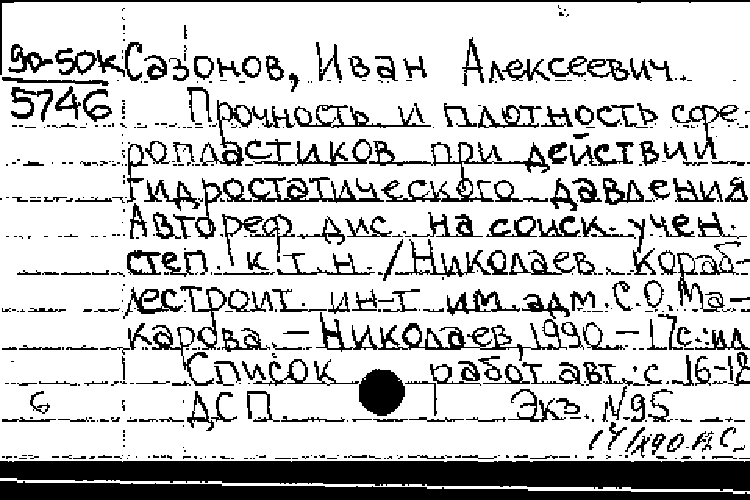 90-50к Сазонов, Иван Алексеевич
5746 Прочность и плотность сфе-
ропластиков при действии
гидростатического давления
Автореф. дис. на соиск. учен.
степ. к. т. н. / Николаев. кораб-
лестроит. ин-т им. адм. С.О.Ма-
карова. – Николаев, 1990. – 17с.:ил
Список работ авт.: с. 16-18
6 ДСП Экз. N95